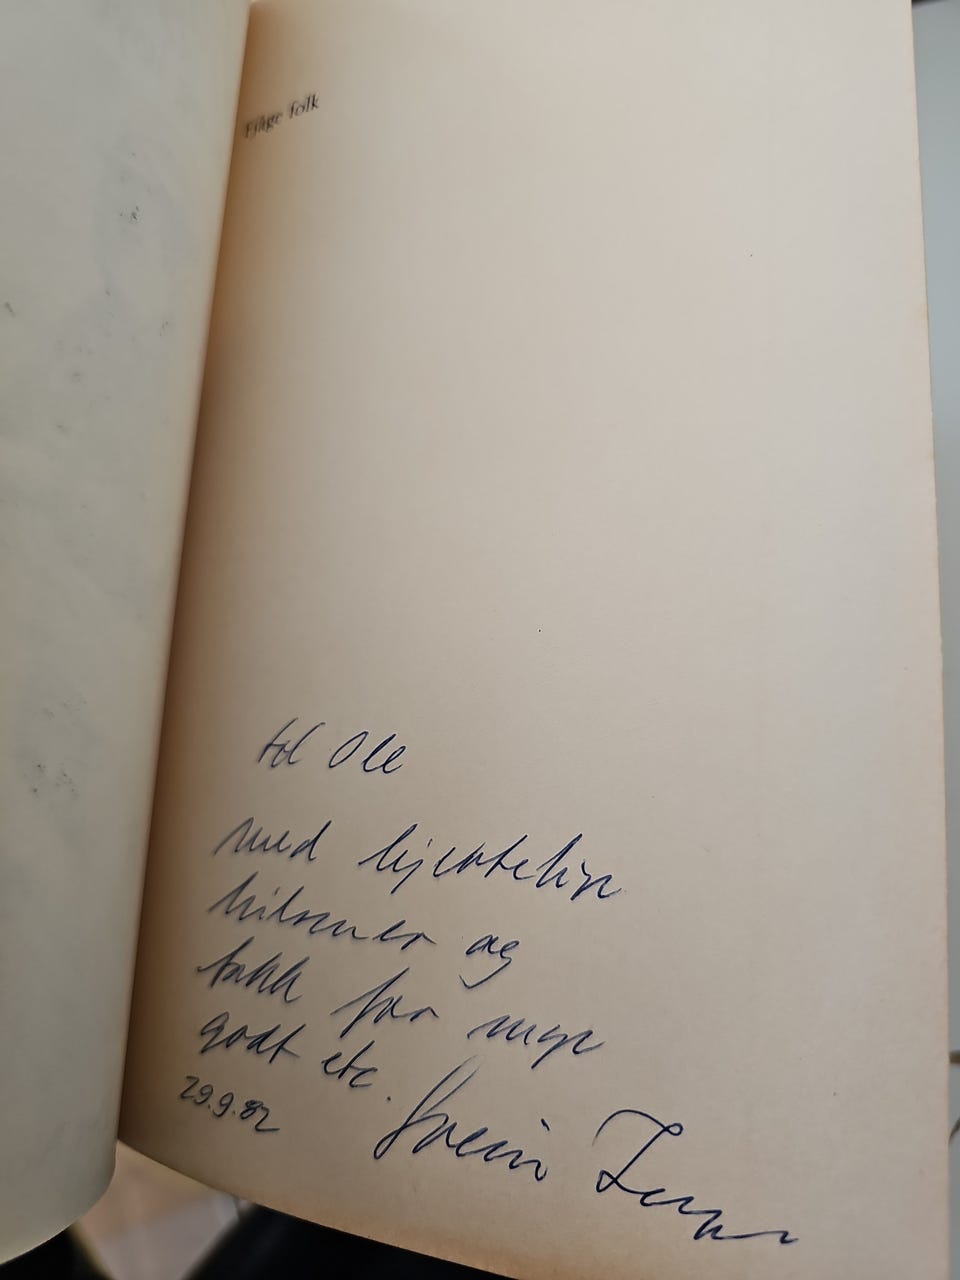 Fjåge folk
til Ole
med hjertelige
hilsener og
takk for mye
godt etc.
29.9.82
Svein